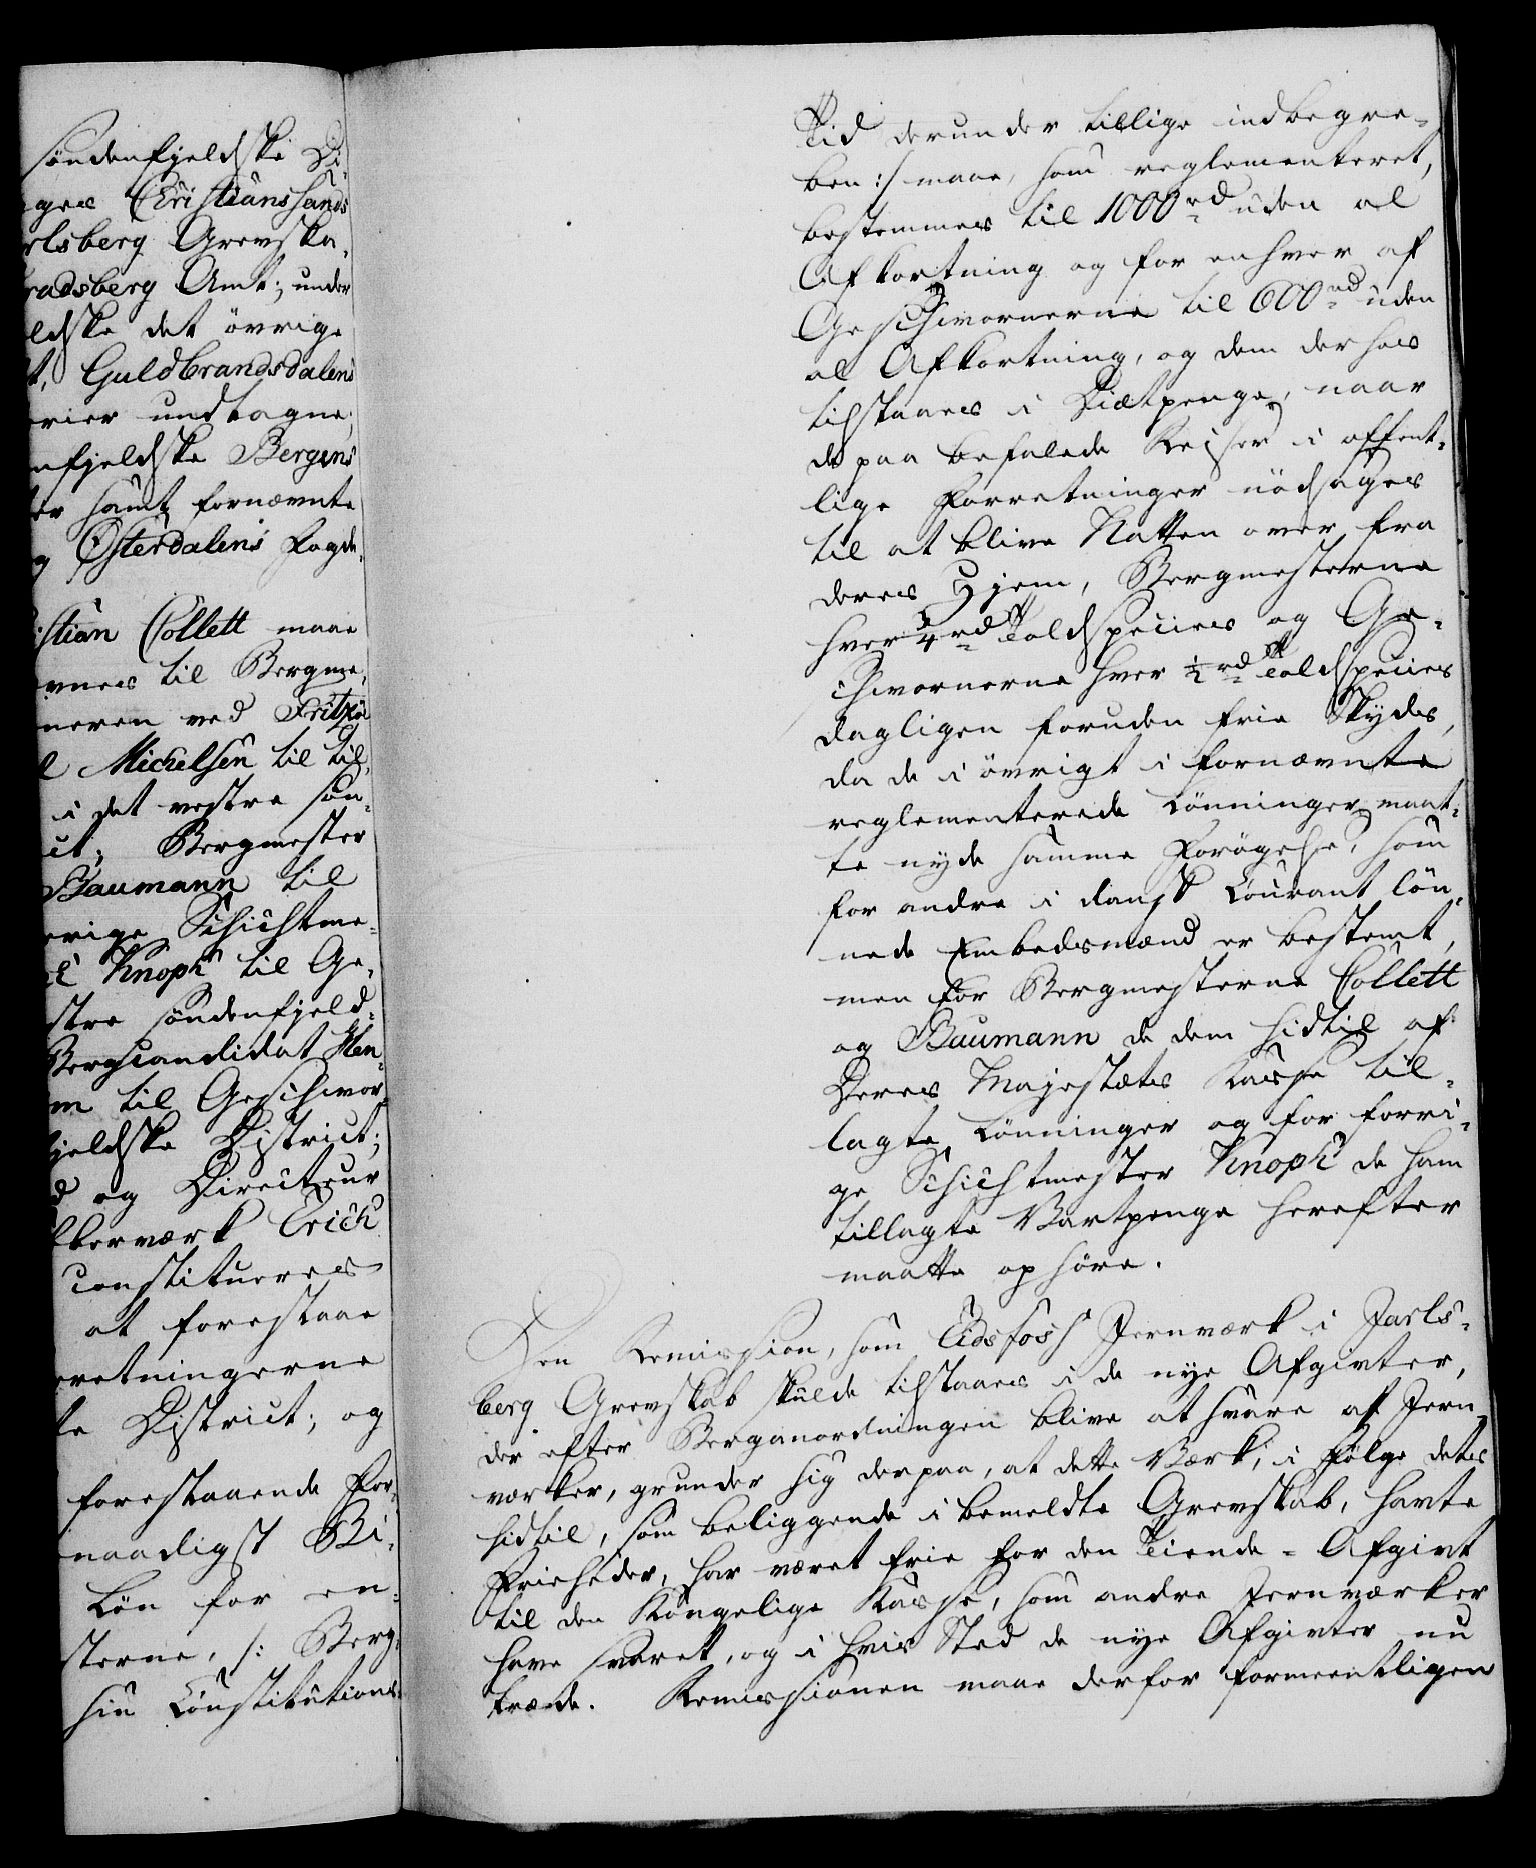 söndenfjeldske Di-
ges Christianssands
rlsberg Grevska-
radsberg Amt; under
ldske det övrige
t, Guldbrandsdalens
erier undtagne;
nfjeldske Bergens
er samt fornævnte
g Österdalens Fogde-
istian Collett maae
vnes til Bergme-
neren ved Fritzöe
l Michelsen til til
i det vestre sön-
ct; Bergmester
Baumann til
rige Schichtme-
Knoph til Ge-
stre söndenfjeld-
Bergcandidat Hen-
m til Geschwor-
fjeldske District;
d og Directeur
lverværk Erich
constitueres
at forestaae
retningerne
te District; og
forestaaende For-
naadigst Bi-
Løn for en-
sterne, /: Berg-
sin Constitutions-
Tid derunder tillige indbegre-
ben :/ maae, som reglementeret,
bestemmes til 1000 rd uden al
Afkortning og for enhver af
Geschwornerne til 600 rd uden
al Afkortning, og dem derhos
tilstaaes i Diætpenge, naar
de paa befalede Reiser i offent-
lige Forretninger nödsages
til at blive Natten over fra
deres Hjem, Bergmesterne
hver 3/4 rd Toldspecies og Ge-
schwornerne hver 1/2 rd Toldspecies
dagligen foruden frie Skyds,
da de i övrigt i fornævnte
reglementerede Lönninger maat-
te nyde samme Forögelse, som
for andre i dansk Courant lön-
nede Embedsmænd er bestemt,
men for Bergmesterne Collett
og Baumann de dem hidtil af
Deres Majestæts Kasse til-
lagte Lönninger og for forri-
ge Schichtmester Knoph de ham
tillagte Vartpenge herefter
maatte ophöre.
Den Remission, som Eidsfoss Jernværk i Jarls-
berg Grevskab skulde tilstaaes i de nye Afgivter,
der efter Berganordningen blive at svare af Jern-
værker, grunder sig derpaa, at dette Værk, i Fölge dets
hidtil, som beliggende i bemeldte Grevskab, havte
Frieheder, har været frie for den Tiende-Afgivt
til den Kongelige Kasse, som andre Jernværker
have svaret, og i hvis Sted de nye Afgivter nu
træde. Remissionen maae derfor formeentligen